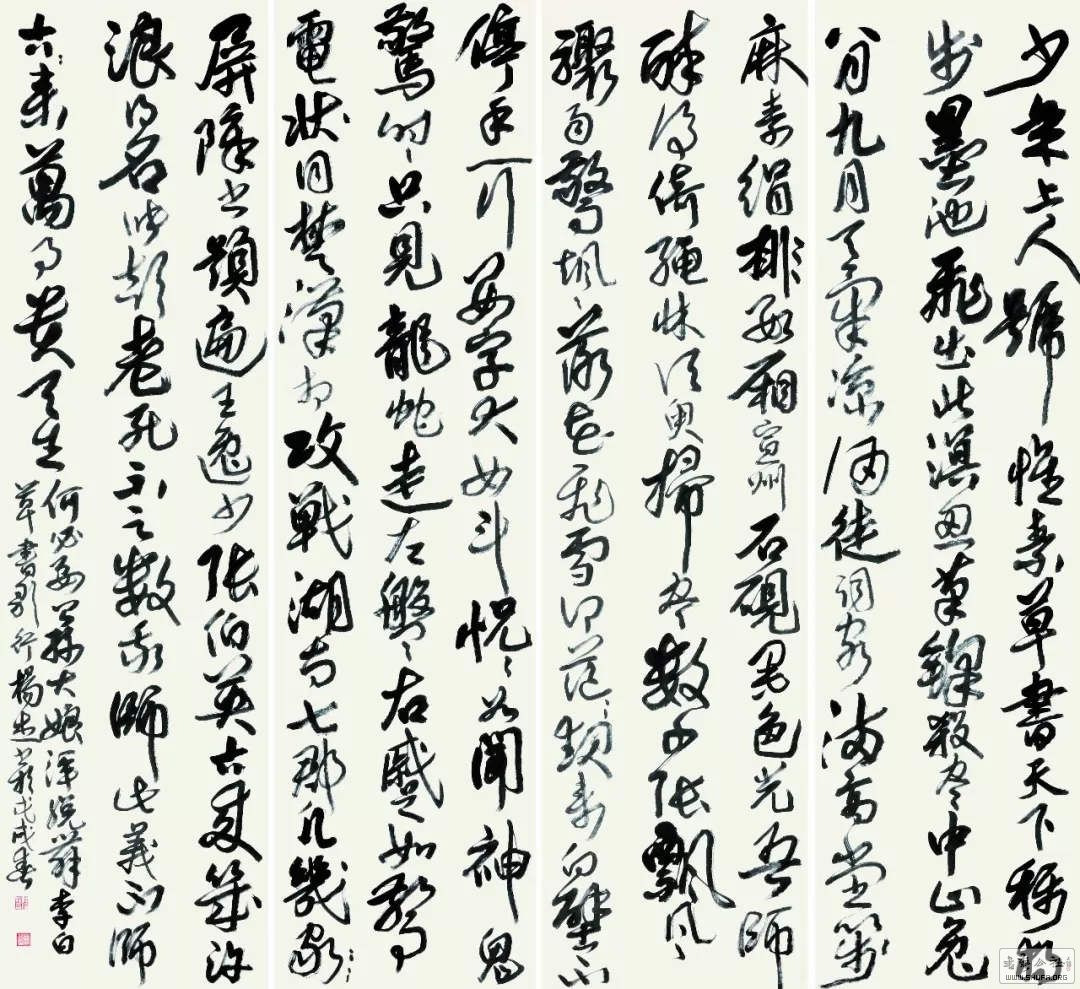 少年上人號懷素草書天下稱獨
步墨池飛出北溟魚筆鋒殺盡中山兔
八月九月天氣涼酒徒詞客滿高堂箋
麻素絹排數廂宣州石硯墨色光吾師
醉後倚繩床須臾掃盡數千張飄風
驟雨驚颯颯落花飛雪何茫茫起來向壁不
停手一行數字大如斗怳怳如聞神鬼
驚時時只見龍蛇走左盤右蹙如驚
電狀同楚漢相攻戰湖南七郡凡幾家家家
屏障書題遍王逸少張伯英古來幾許
浪得名張顛老死不足數我師此義不師
古古來萬事貴天生
何必要公孫大娘渾脫舞李白
草書歌行楊戊戌春
WWW.SHUFA.ORG